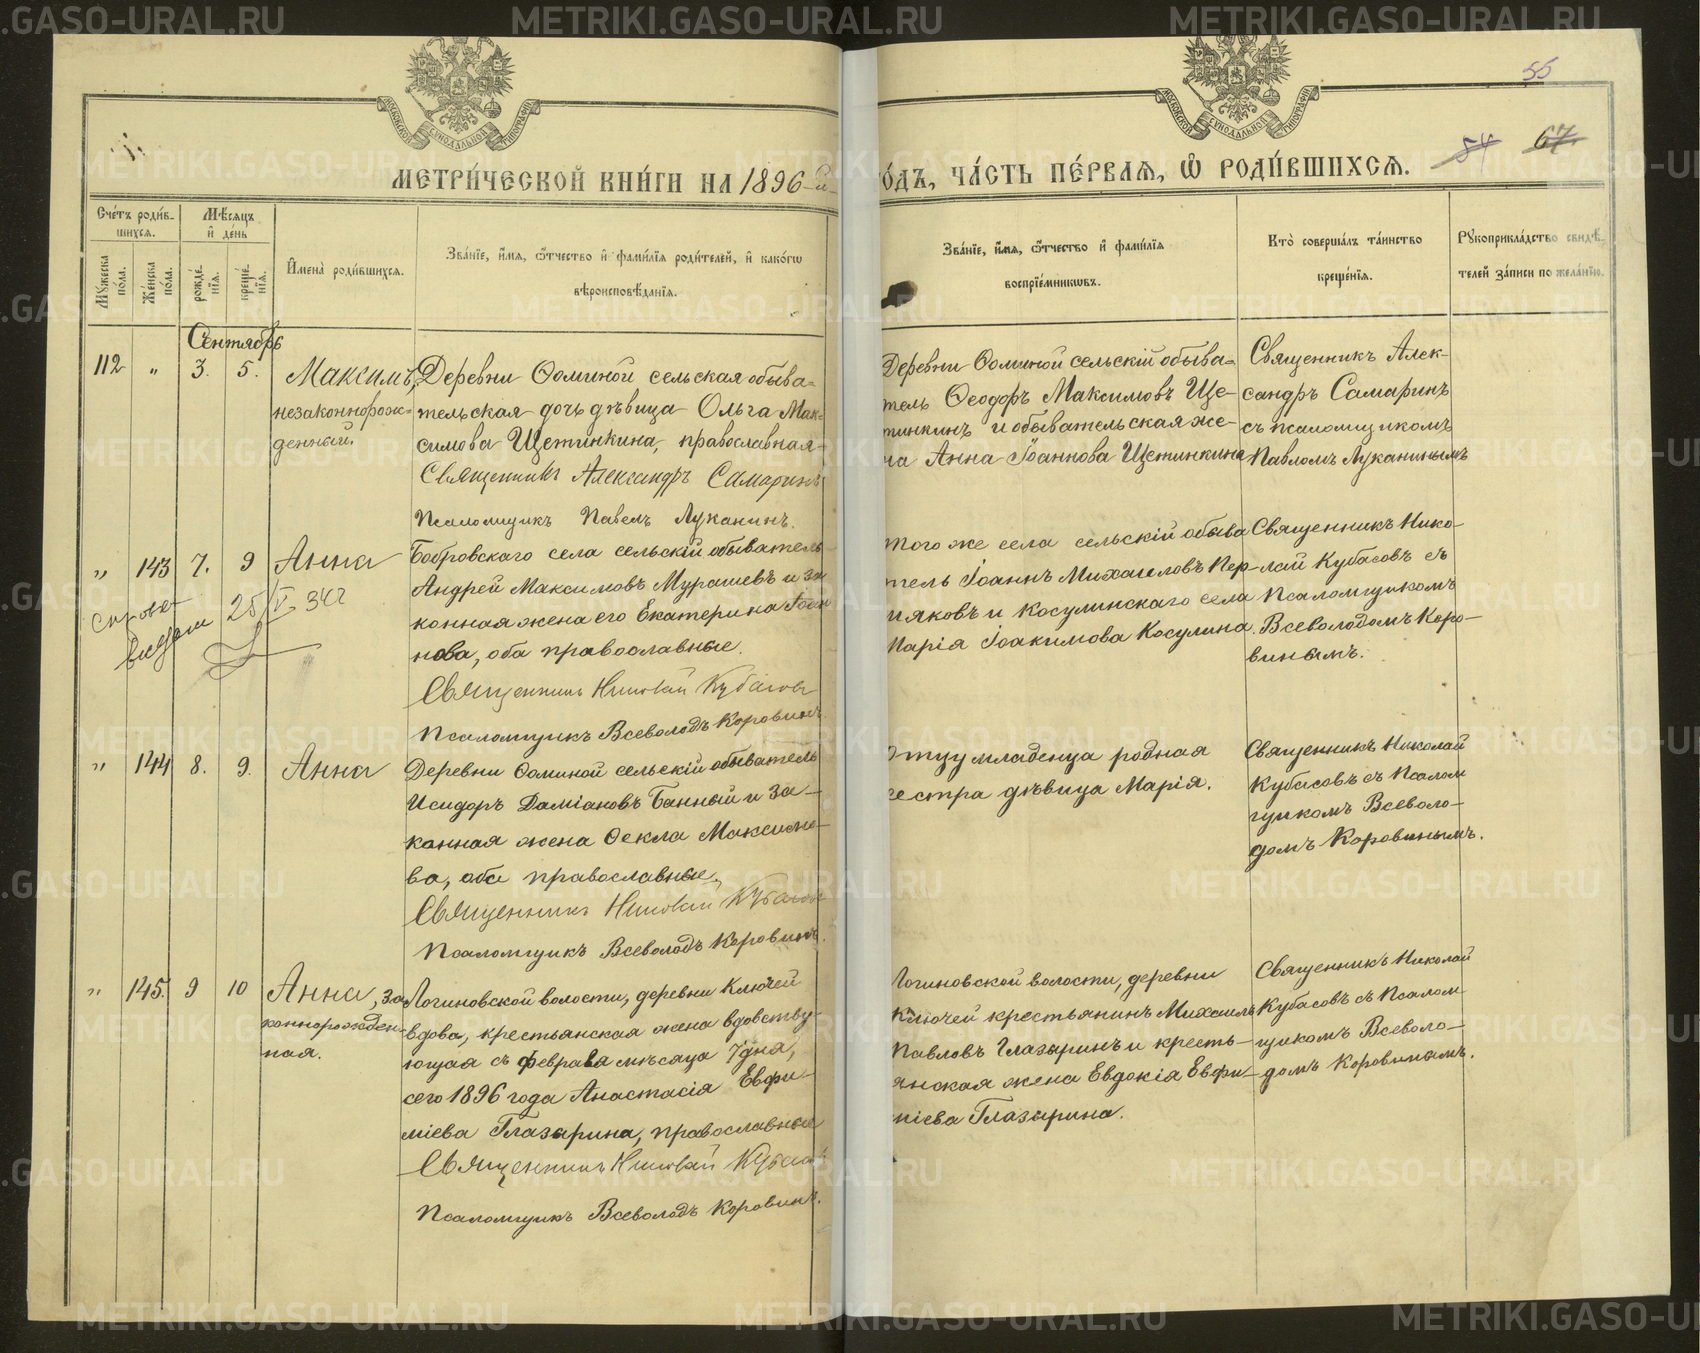 МЕТРИ́ЧЕСКОЙ КНИ́ГИ НА 1896-й
ГО́ДЪ, ЧА́СТЬ ПЕ́РВАЯ, Ѡ҆ РОДИ́ВШИХСЯ.
55
54 67
МОСКОВСКОЙ СѴНОДАЛЬНОЙ ТИПОГРАФІИ
МОСКОВСКОЙ СѴНОДАЛЬНОЙ ТИПОГРАФІИ
Сче́тъ роди́в-
шихся.
Мѣ́сяцъ
и҆ де́нь
Мꙋ́жеска по́ла.
Же́нска по́ла.
рожде́нїя.
креще́нїя.
И҆мена̀ роди́вшихся.
Зва́нїе, и҆́мя, ѻ҆́тчество и҆ фами́лїя роди́телей, и҆ како́гѡ
вѣроисповѣ́данїя.
Зва́нїе, и҆́мя, ѻ҆́тчество и҆ фами́лїя
воспрїе́мникѡвъ.
Кто̀ соверша́лъ та́инство
креще́нїя.
Рꙋкоприкла́дство свидѣ́-
телей за́писи по жела́нїю.
Сентябрь
112 " 3. 5.
Максимъ,
незаконнорож=
денный.
Деревни Ѳоминой сельская обыва=
тельская дочь дѣвица Ольга Мак-
симова Щетинкина, православная
Священникъ Александръ Самаринъ
Псаломщикъ Павелъ Луканинъ.
Деревни Ѳоминой сельскій обыва=
тель Ѳеодоръ Максимовъ Ще-
тинкинъ и обывательская же-
на Анна Іоаннова Щетинкина
Священникъ Алек-
сандръ Самаринъ
съ псаломщикомъ
Павломъ Луканинымъ
" 143 7. 9 Анна
25/V 34г
Бобровскаго села сельскій обыватель
Андрей Максимовъ Мурашевъ и за
конная жена его Екатерина Іоан
нова, оба православные.
Священникъ Николай Кубасовъ
Псаломщикъ Всеволодъ Коровинъ.
того же села сельскій обыва
тель Іоаннъ Михаиловъ Пер-
ияковъ и Косулинскаго села
Марія Іоакимова Косулина.
Священникъ Нико-
лай Кубасовъ съ
Псаломщикомъ
Всеволодомъ Коро-
винымъ.
" 144 8. 9. Анна
Деревни Ѳоминой сельскій обыватель
Исидоръ Даміановъ Банный и за-
конная жена Ѳекла Максимо-
ва, оба православные.
Священникъ Николай Кубасовъ
Псаломщикъ Всеволодъ Коровинъ.
Отцу младенца родная
сестра дѣвица Марія.
Священникъ Николай
Кубасовъ съ Псалом
щикомъ Всеволо-
домъ Коровинымъ.
" 145. 9 10 Анна, за
коннорожден-
ная.
Логиновской волости, деревни Ключей
вдова, крестьянская жена вдовству-
ющая съ февраля мѣсяца 7 дня,
сего 1896 года Анастасія Евфи-
міева Глазырина, православные
Священникъ Николай Кубасовъ
Псаломщикъ Всеволодъ Коровинъ.
Логиновской волости, деревни
Ключей крестьянинъ Михаилъ
Павловъ Глазыринъ и кресть-
янская жена Евдокія Евфи-
міева Глазырина.
Священникъ Николай
Кубасовъ съ Псалом
щикомъ Всеволо-
домъ Коровинымъ.
METRIKI.GASO-URAL.RU